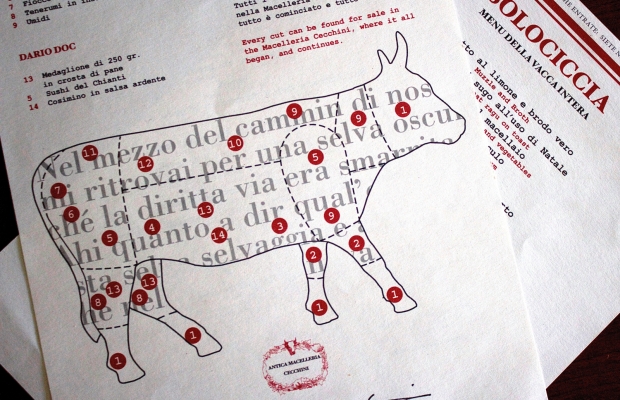 7 Fiocco
8 Tenerumi in ins
9 Umidi
DARIO DOC
13 Medaglione di 250 gr.
in crosta di pane
5 Sushi del Chianti
14 Cosimino in salsa ardente
Tutti i
nella Macelleria
tutto è cominciato e tutto
Every cut can be found for sale in
the Macelleria Cecchini, where it all
began, and continues.
CHE ENTRATE: SIETE N
SOLOCICCIA
MENU DELLA VACCA INTERA
to al limone e brodo vero
Muzzle and Broth
sugo all'uso di Natale
at ragu on toast
macellaio
and vegetables
culo
Nel mezzo del cammin di nos
mi ritrovai per una selva oscu
ché la diritta via era smarrita
hi quanto a dir qual'
sta selva selvaggia e
he nel
11
12
10
9
9
1
5
7
6
5
4
13
14
3
9
2
2
8
13
8
13
1
1
1
1
ANTICA MACELLERIA
CECCHINI